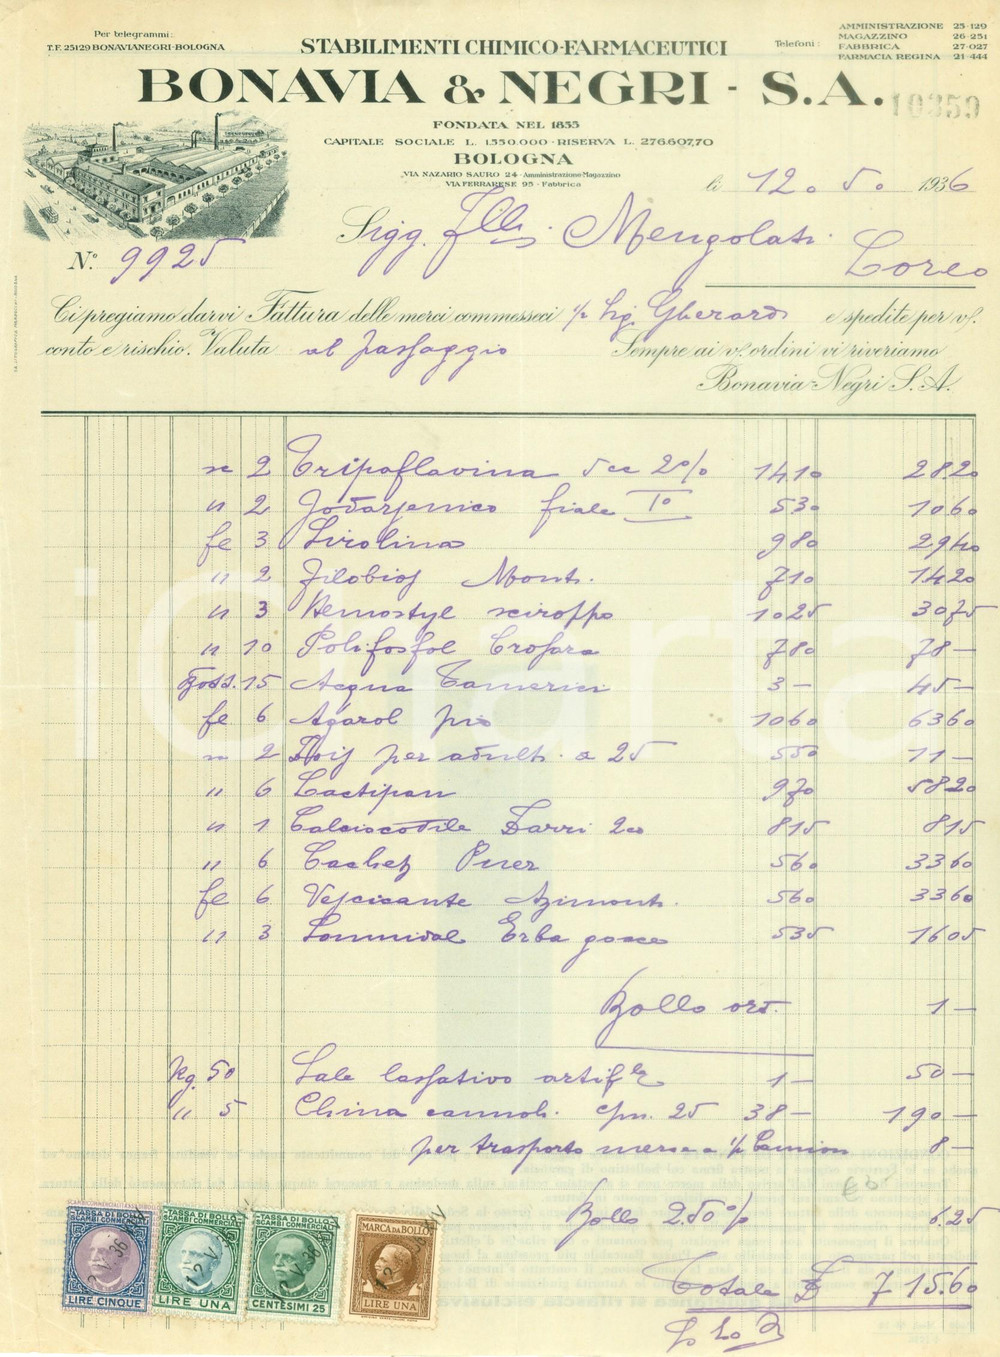 Per telegrammi:
T.F. 25129 BONAVIANEGRI-BOLOGNA
STABILIMENTI CHIMICO-FARMACEUTICI
Telefoni:
AMMINISTRAZIONE 25-129
MAGAZZINO 26-251
FABBRICA 27-027
FARMACIA REGINA 21-444
BONAVIA & NEGRI - S.A.
10359
FONDATA NEL 1855
CAPITALE SOCIALE L. 1.550.000 - RISERVA L. 276.607,70
BOLOGNA
VIA NAZARIO SAURO 24 - Amministrazione-Magazzino
VIA FERRARESE 95 - Fabbrica
li 12. 5. 1936
Sigg. F.lli Mengolati
Loreo
N.° 9925
Ci pregiamo darvi Fattura delle merci commesseci % Sig. Gherardi e spedite per v/.
conto e rischio. Valuta al passaggio Sempre ai v/. ordini vi riveriamo
Bonavia-Negri S. A.
sc 2 Tripaflavina 5cc 2% 14.10 28.20
" 2 Jodarsenico fiale I° 5.30 10.60
fe 3 Sirolina 9.80 29.40
" 2 Filobios Mont. 7.10 14.20
" 3 Hemostyl sciroppo 10.25 30.75
" 10 Polifosfol Crosara 7.80 78 —
15 Acqua Tamerici 3 — 45 —
fe 6 Agarol 10.60 63.60
2 per adulti a 25 5.50 11 —
" 6 Lactipan 9.70 58.20
" 1 Zarri 8.15 8.15
" 6 Cachet 5.60 33.60
fe 6 Vescicante Azimonti 5.60 33.60
" 3 Erba gocce 5.35 16.05
Bollo 1 —
Kg. 50 Sale lassativo artif.le 1 — 50 —
" 5 China cannoli 25 38 — 190 —
per trasporto merce a Camion 8 —
Bollo 2.50% 6.25
Totale £ 715.60
SCAMBI COMMERCIALI
LIRE CINQUE
TASSA DI BOLLO
SCAMBI COMMERCIALI
LIRE UNA
TASSA DI BOLLO
SCAMBI COMMERCIALI
CENTESIMI 25
MARCA DA BOLLO
LIRE UNA
12 V. 36
iCharta